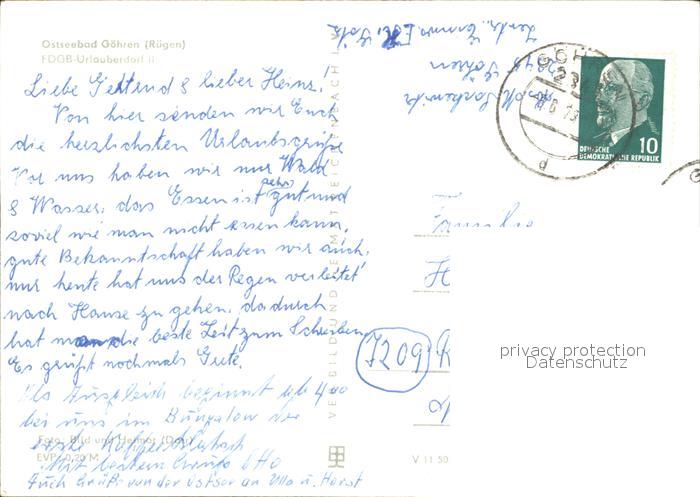 Ostseebad Göhren (Rügen)
FDGB-Urlauberdorf II
Liebe Gertrud & lieber Heinz!
Von hier senden wir Euch
die herzlichsten Urlaubsgrüße
Vor uns haben wir nur Wald
& Wasser, das Essen ist sehr gut und
soviel wie man nicht essen kann,
gute Bekanntschaft haben wir auch,
nur heute hat uns der Regen verleitet
nach Hause zu gehen, dadurch
hat man die beste Zeit zum Schreiben
Es grüßt nochmals Grete.
Als Ausgleich beginnt ab 4 00
bei uns im Bungalow der
erste Kaffeeklatsch
Mit besten Gruß Otto
Auch Grüße von der Ostsee an Ulla u. Horst
Foto: Bild und Heimat
EVP 0,20 M
VERLAG BILD UND HEIMAT REICHENBACH I. V.
V 11 50
Göhren
GÖH
DEUTSCHE
DEMOKRATISCHE REPUBLIK
10
d
Familie
H
7209 K
privacy protection
Datenschutz